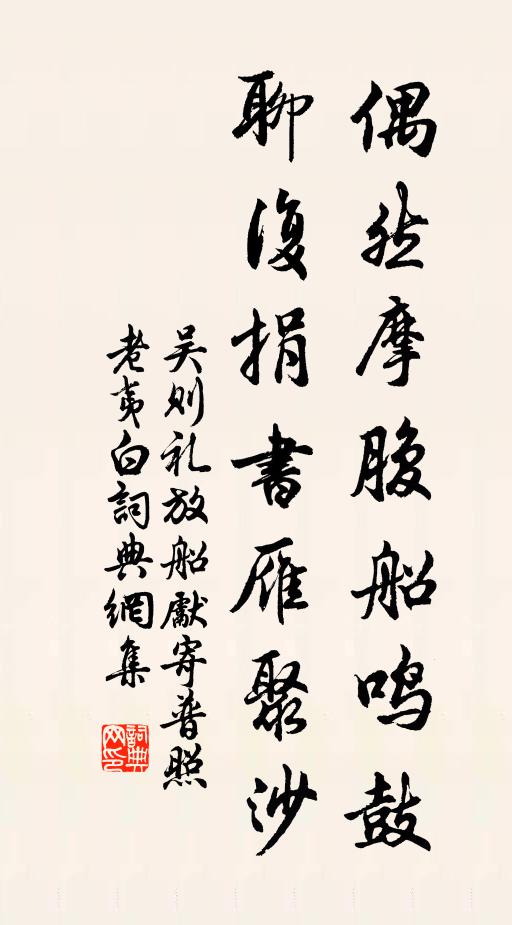 偶然摩腹船鸣鼓
聊復捐書雁聚沙
吴则礼放船獻寄普照
老夷白詞典網集
詞典网印